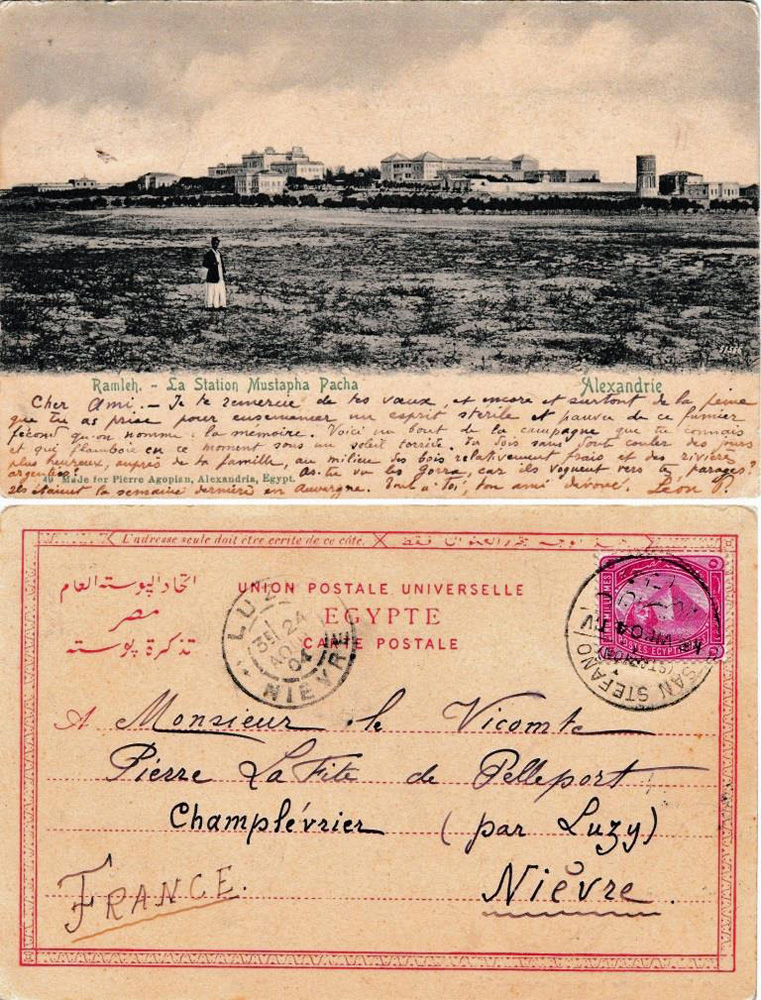 Ramleh. - La Station Mustapha Pacha
Alexandrie
Cher Ami. - Je te remercie de tes vœux, et encore et surtout de la peine
que tu as prise pour ensemencer un esprit sterile et pauvre de ce fumier
fécond qu'on nomme: la mémoire. Voici un bout de la campagne que tu connais
et qui flamboie en ce moment sous un soleil torride. Tu dois sans doute couler des jours
plus heureux, auprès de ta famille, au milieu des bois relativement frais et des rivières
argentées? As-tu vu les Gorra, car ils voguent vers tes parages?
49 Made for Pierre Agopian, Alexandria, Egypt.
Ils étaient la semaine dernière en Auvergne. Tout à toi, ton ami dévoué. Léon P.
L'adresse seule doit être écrite de ce côté.
اتحاد البوسته العام
مصر
تذكرة بوسته
UNION POSTALE UNIVERSELLE
EGYPTE
CARTE POSTALE
LUZY
24
AOUT
04
NIEVRE
POSTES EGYPTIENNES
SAN STEFANO
A Monsieur le Vicomte
Pierre La Fite de Pelleport
Champlévrier (par Luzy)
Nièvre.
FRANCE.